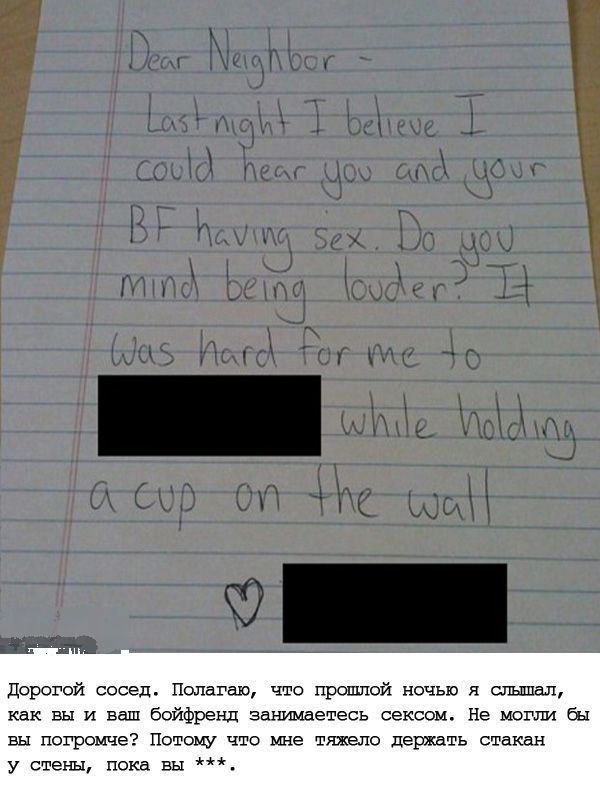 Dear Neighbor -
Last night I believe I
could hear you and your
BF having sex. Do you
mind being louder? It
was hard for me to
while holding
a cup on the wall
Дорогой сосед. Полагаю, что прошлой ночью я слышал,
как вы и ваш бойфренд занимаетесь сексом. Не могли бы
вы погромче? Потому что мне тяжело держать стакан
у стены, пока вы ***.